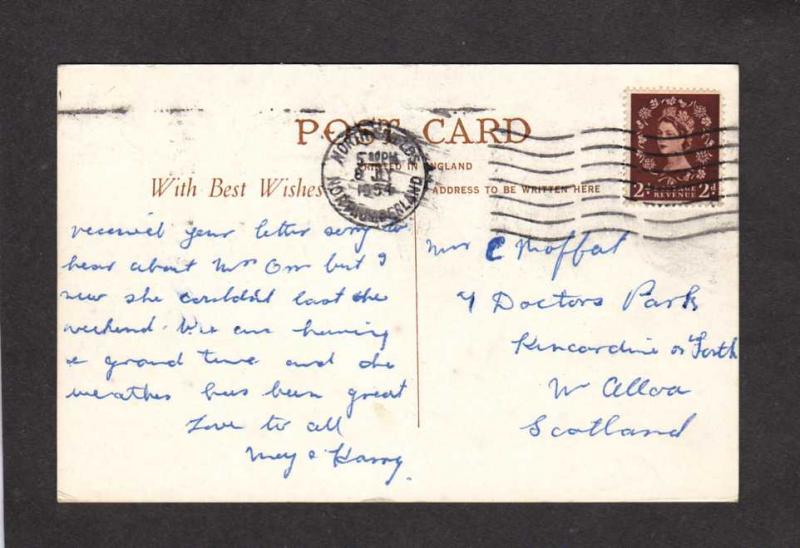 POST CARD
PRINTED IN ENGLAND
With Best Wishes
ADDRESS TO BE WRITTEN HERE
NORTH SHIELDS
8 JY
1954
NORTHUMBERLAND
POSTAGE
REVENUE
2D 2D
received your letter sorry to
hear about Mrs Orr but I
new she couldn't last the
weekend. We are having
a grand time and the
weather has been great
Love to all
May & Harry.
Mrs C Moffat
Doctors Park
Kincardine on Forth
Alloa
Scotland